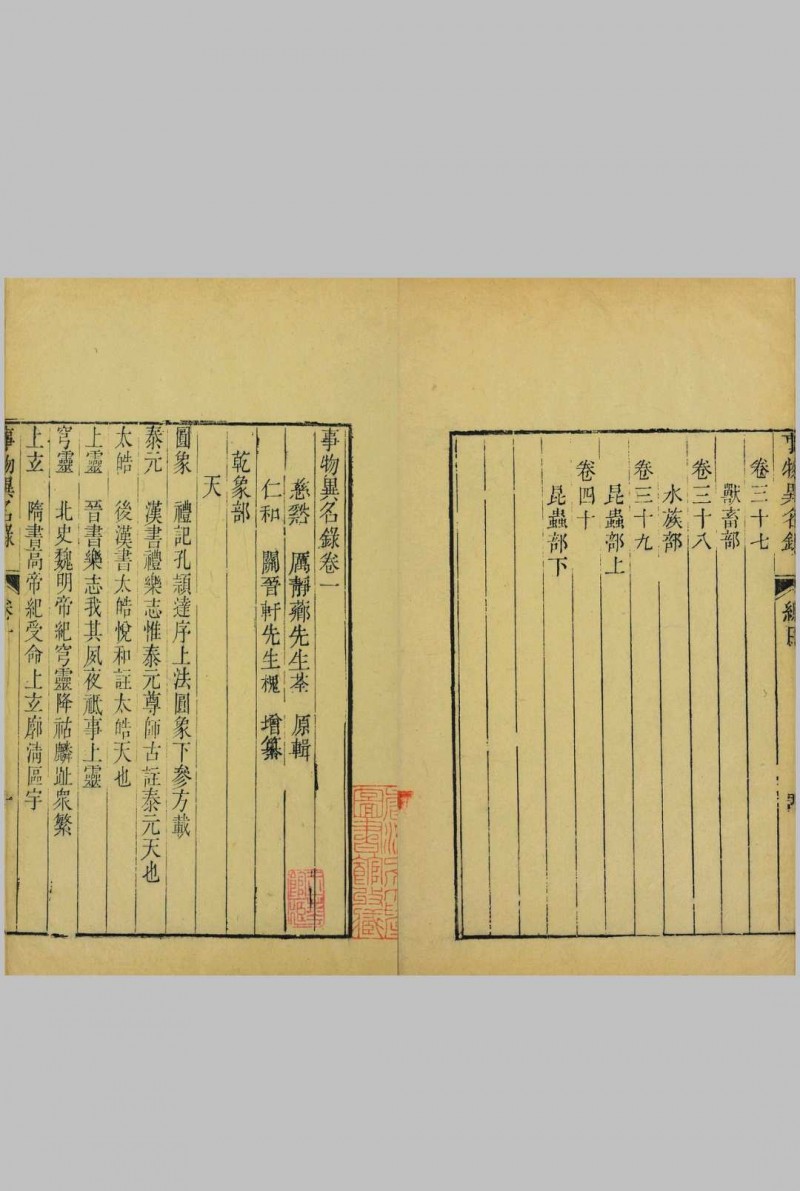 事物異名錄
總目
卷三十七
獸畜部
卷三十八
水族部
卷三十九
昆蟲部上
卷四十
昆蟲部下
事物異名錄卷一
慈谿 厲靜薌先生荃 原輯
仁和 關晉軒先生槐 增纂
乾象部
天
圓象 禮記孔頴達序上法圓象下參方載
泰元 漢書禮樂志惟泰元尊師古註泰元天也
太皓 後漢書太皓悅和註太皓天也
上靈 晉書樂志我其夙夜祗事上靈
穹靈 北史魏明帝紀穹靈降祜麟趾衆繁
上玄 隋書高帝紀受命上玄廓清區宇
事物異名錄
卷一
圖書館收藏